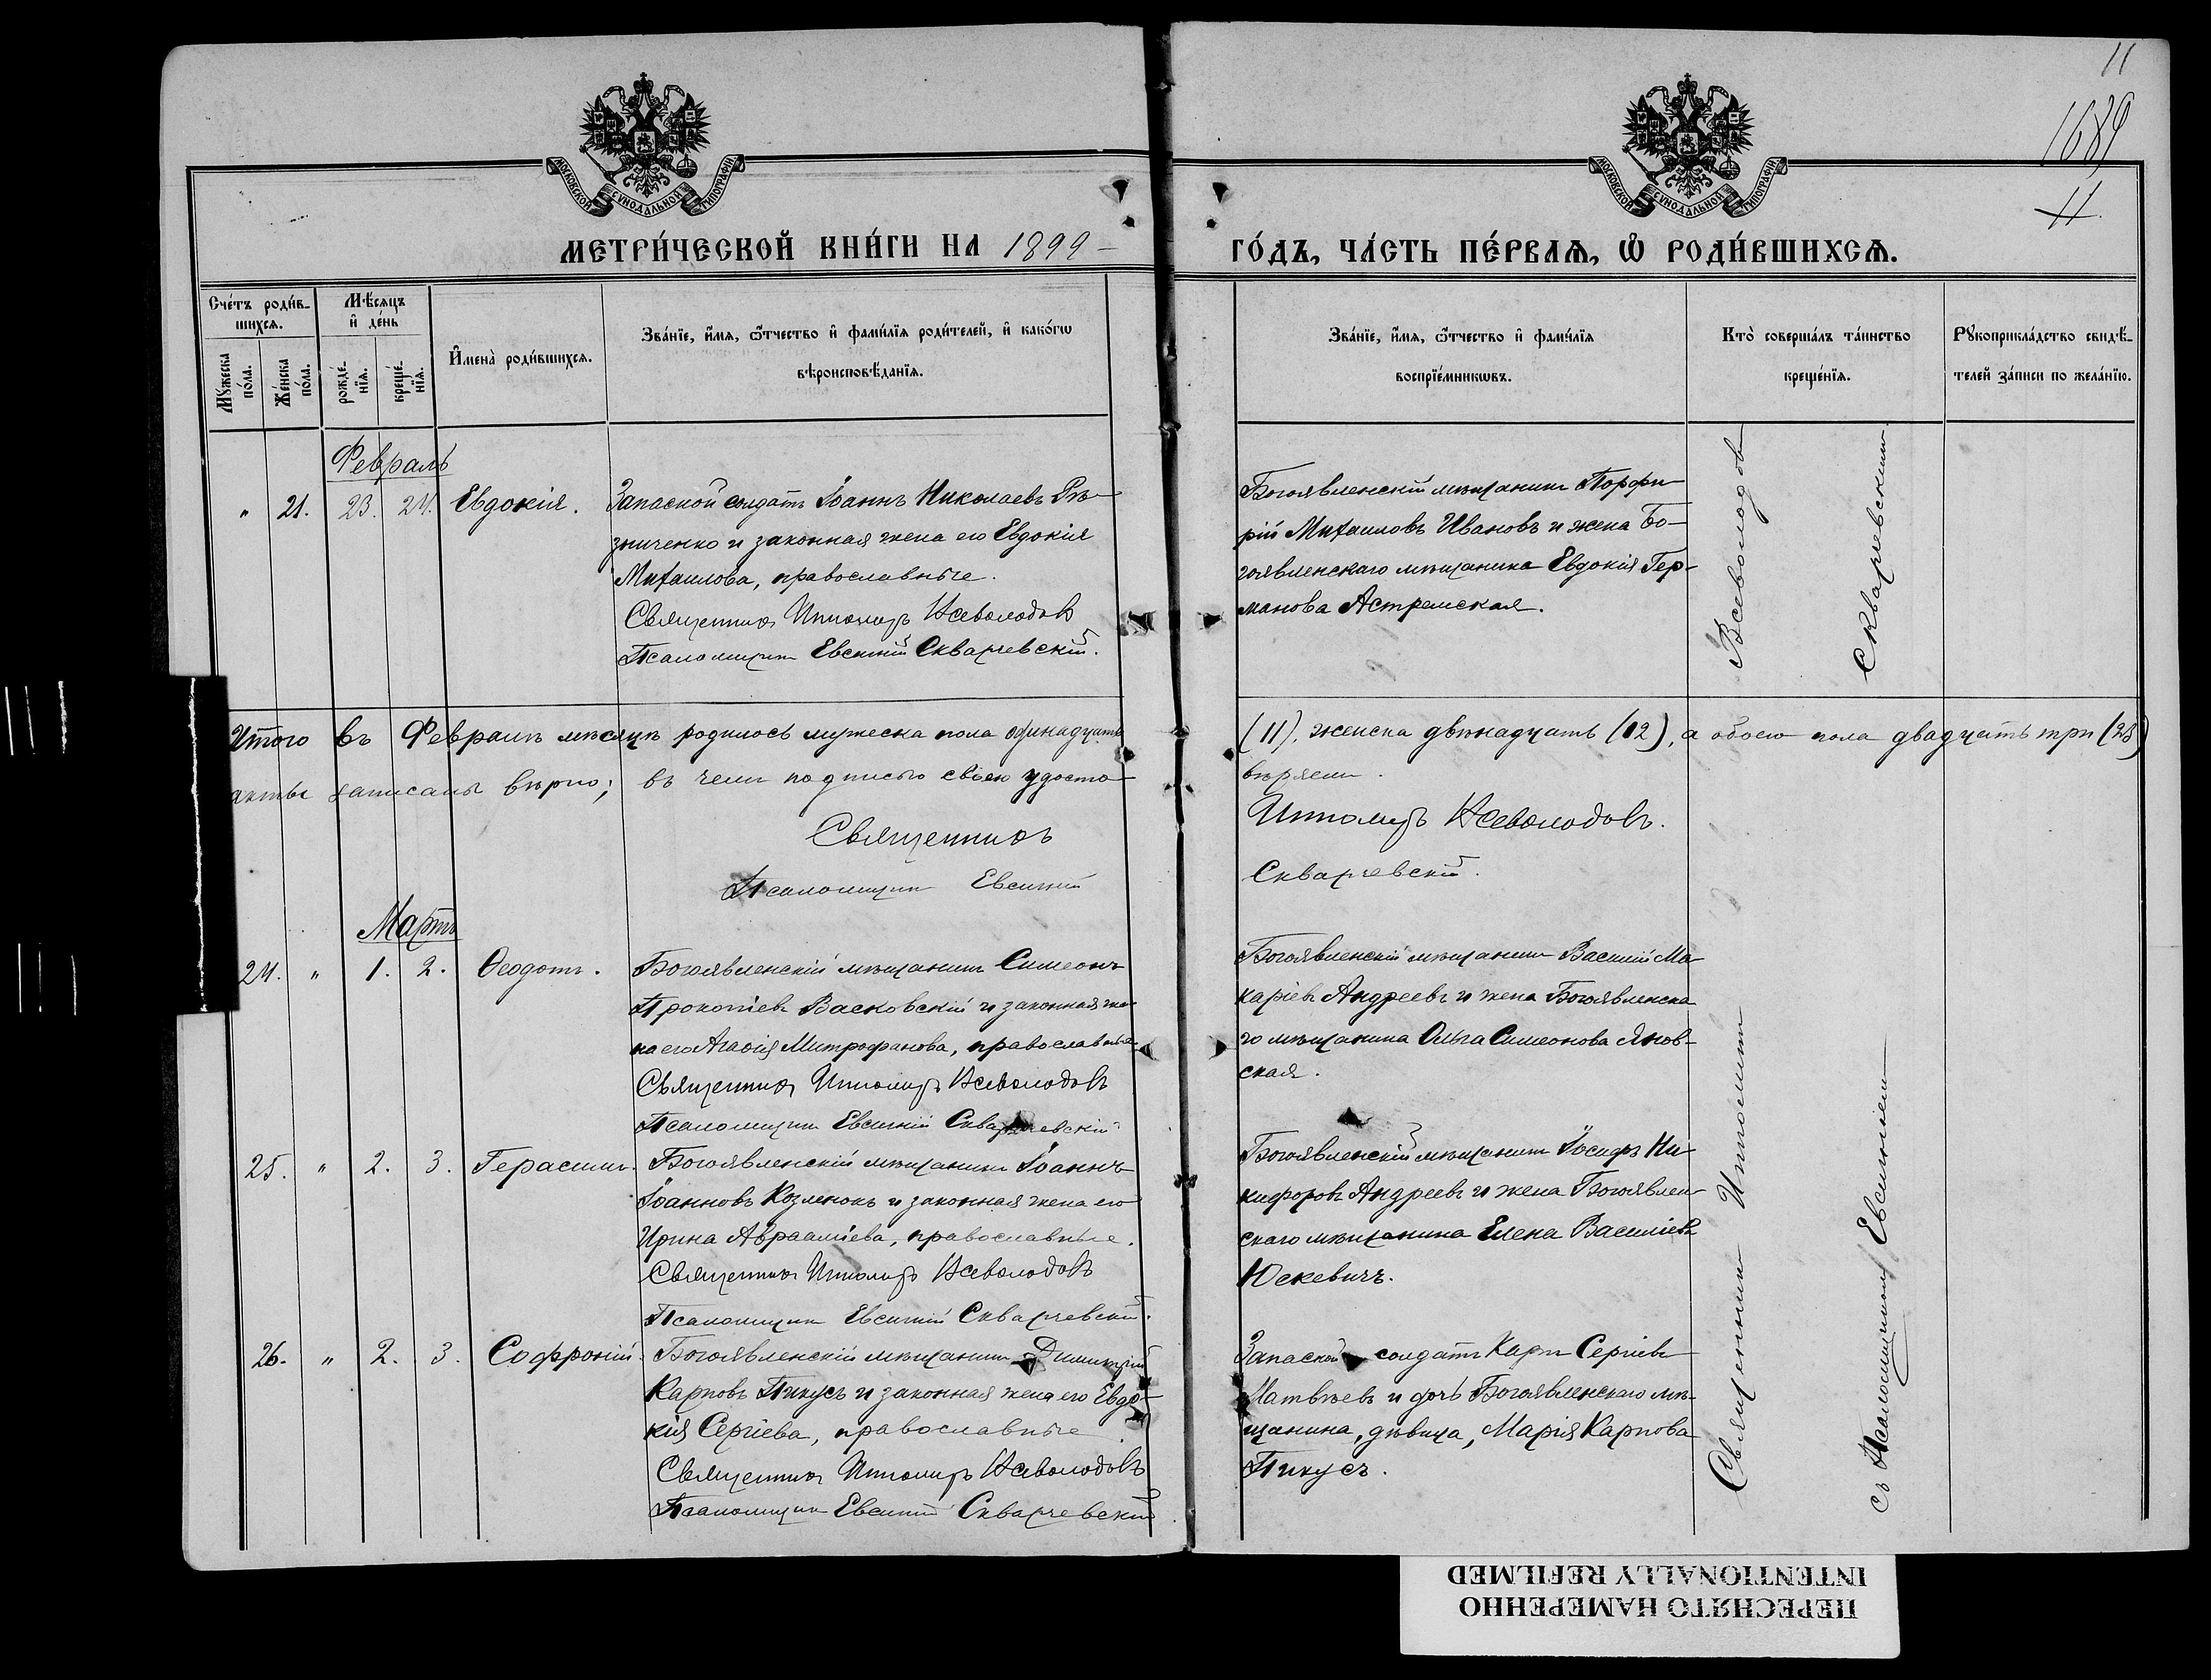 11
1689
11
МОСКОВСКОЙ СѴНОДАЛЬНОЙ ТИПОГРАФІИ
МОСКОВСКОЙ СѴНОДАЛЬНОЙ ТИПОГРАФІИ
МЕТРИ́ЧЕСКОЙ КНИ́ГИ НА 1899 –
ГО́ДЪ, ЧА́СТЬ ПЕ́РВАѦ, Ѽ РОДИ́ВШИХСѦ.
Сче́тъ роди́в-
шихсѧ.
Мꙋжеска
по́ла.
Же́нска
по́ла.
Мѣ́сѧцъ
и҆ де́нь
рожде́-
нїѧ.
креще́-
нїѧ.
И҆мена̀ роди́вшихсѧ.
Зва́нїе, и҆́мѧ, ѻ҆́тчество и҆ фами́лїѧ роди́телей, и҆ како́гѡ
вѣроисповѣ́данїѧ.
Зва́нїе, и҆́мѧ, ѻ҆́тчество и҆ фами́лїѧ
воспрїе́мникѡвъ.
Кто̀ соверша́лъ та́инство
креще́нїѧ.
Рꙋкоприкла́дство свидѣ́-
телей за́писи по жела́нїю.
Февраль
" 21. 23. 24. Евдокія.
Запасной солдатъ Іоаннъ Николаевъ Рѣ-
зниченко и законная жена его Евдокія
Михаилова, православные.
Священникъ Ипполитъ Всеволодовъ
Псаломщикъ Евсигній Скварчевскій.
Богоявленскій мѣщанинъ Порфи-
рій Михаиловъ Ивановъ и жена Бо-
гоявленскаго мѣщанина Евдокія Гер-
манова Астремская.
Итого въ Февралѣ мѣсяцѣ родилось мужеска пола одинадцать
(11), женска двѣнадцать (12), а обоего пола двадцать три (23)
акты записаны вѣрно; въ чемъ подписью своею удосто-
вѣряемъ.
Священникъ
Ипполитъ Всеволодовъ.
Псаломщикъ Евсигній
Скварчевскій.
Мартъ
24. " 1. 2. Ѳеодотъ.
Богоявленскій мѣщанинъ Симеонъ
Прокопіевъ Васковскій и законная же-
на его Агаѳія Митрофанова, православные.
Священникъ Ипполитъ Всеволодовъ
Псаломщикъ Евсигній Скварчевскій
Богоявленскій мѣщанинъ Василій Ма-
каріевъ Андреевъ и жена Богоявленска-
го мѣщанина Ольга Симеонова Янов-
ская.
25. " 2. 3. Герасимъ.
Богоявленскій мѣщанинъ Іоаннъ
Іоанновъ Козленокъ и законная жена его
Ирина Авраамiева, православные.
Священникъ Ипполитъ Всеволодовъ
Псаломщикъ Евсигній Скварчевскій.
Богоявленскій мѣщанинъ Іосифъ Ни-
кифоровъ Андреевъ и жена Богоявлен-
скаго мѣщанина Елена Василіева
Юскевичъ.
26. " 2. 3. Софроній.
Богоявленскій мѣщанинъ Димитрій
Карповъ Пикусъ и законная жена его Евдо-
кія Сергіева, православные
Священникъ Ипполитъ Всеволодовъ
Псаломщикъ Евсигній Скварчевскій
Запасной солдатъ Карпъ Сергіевъ
Матвѣевъ и дочь Богоявленскаго мѣ-
щанина, дѣвица, Марія Карпова
Пикусъ.
Священникъ Ипполитъ Всеволодовъ
съ Псаломщикомъ Евсигніемъ Скварчевскимъ.
ПЕРЕСНЯТО НАМЕРЕННО
INTENTIONALLY REFILMED